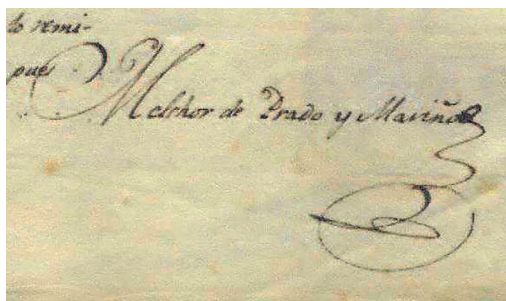 do remi-
pues
Melchor de Prado y Mariño